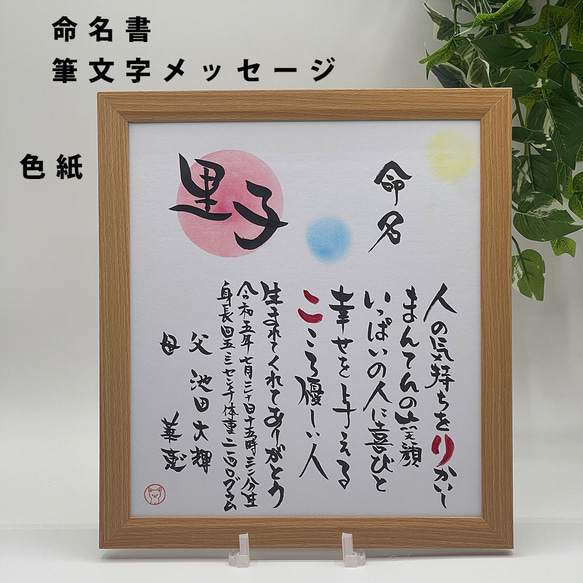 命名書
筆文字メッセージ
色紙
命名
里子
人の気持ちをりかいし
まんてんの笑顔
いっぱいの人に喜びと
幸せを与える
こころ優しい人
生まれてくれてありがとう
令和五年七月三十日十五時三二分生
身長四五、三センチ体重二一四〇グラム
父 池田大輝
母